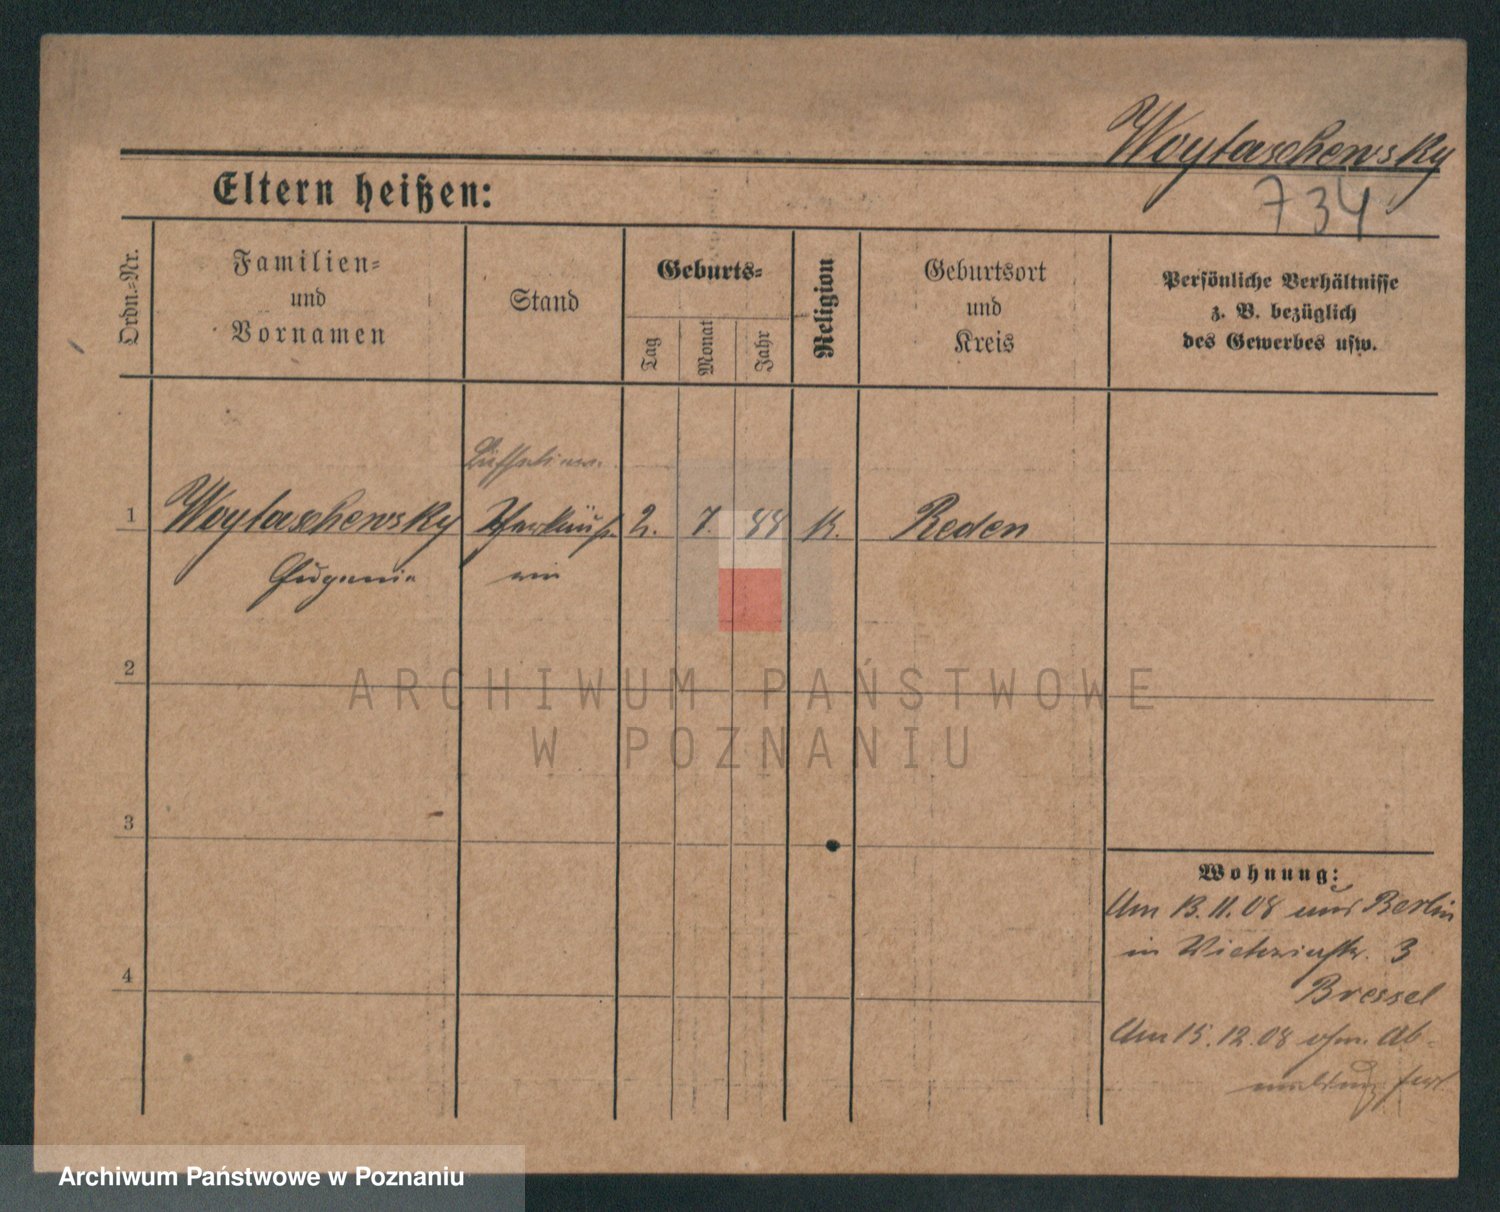 Woytaschewsky
734
Eltern heißen:
Ordn.-Nr.
Familien-
und
Vornamen
Stand
Geburts-
Tag
Monat
Jahr
Religion
Geburtsort
und
Kreis
Persönliche Verhältnisse
z. B. bezüglich
des Gewerbes usw.
Büffetier
1
Woytaschewsky
Verkäuf-
2. 7. 88
K.
Reden
Eugenie
rin
2
ARCHIWUM PAŃSTWOWE
W POZNANIU
3
Wohnung:
Um 13. 11. 08 aus Berlin
in Victoriastr. 3
Bressel
Um 15. 12. 08 ohn. Ab-
meldung fort
4
Archiwum Państwowe w Poznaniu